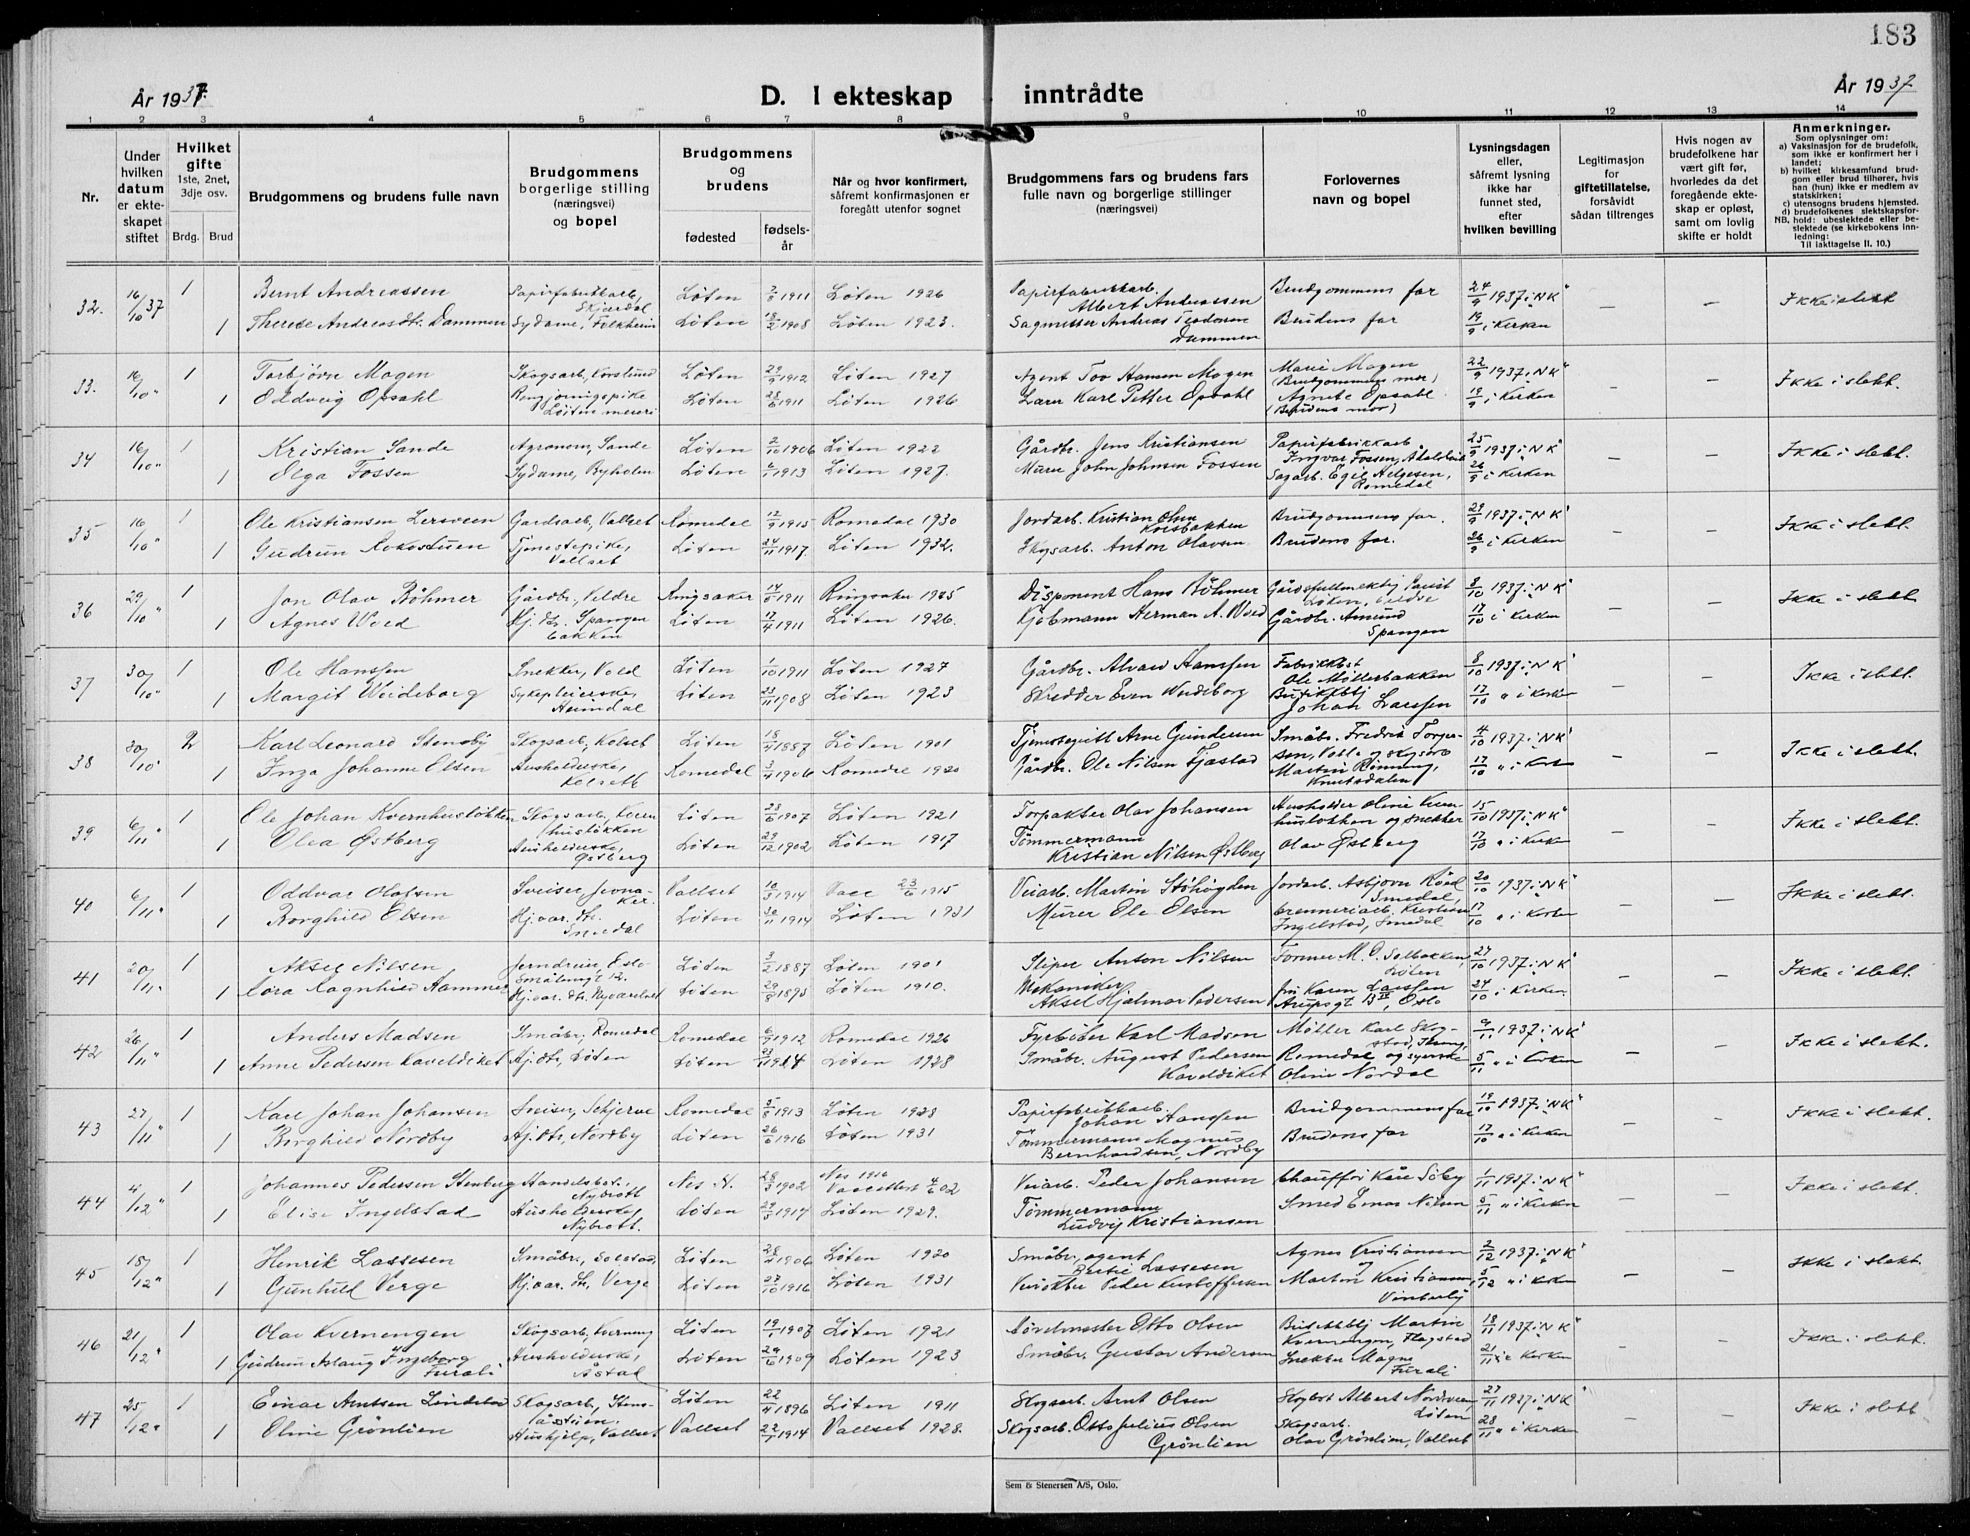 183
År 1937.
D. I ekteskap inntrådte
År 1937
1 2 3 4 5 6 7 8 9 10 11 12 13 14
Nr.
Under hvilken datum er ekteskapet stiftet
Hvilket gifte
1ste, 2net, 3dje osv.
Brdg. Brud
Brudgommens og brudens fulle navn
Brudgommens borgerlige stilling (næringsvei) og bopel
Brudgommens og brudens
fødested
fødselsår
Når og hvor konfirmert, såfremt konfirmasjonen er foregått utenfor sognet
Brudgommens fars og brudens fars fulle navn og borgerlige stillinger (næringsvei)
Forlovernes navn og bopel
Lysningsdagen eller, såfremt lysning ikke har funnet sted, efter hvilken bevilling
Legitimasjon for giftetillatelse, forsåvidt sådan tiltrenges
Hvis nogen av brudefolkene har vært gift før, hvorledes da det foregående ekteskap er opløst, samt om lovlig skifte er holdt
Anmerkninger.
Som oplysninger om:
a) Vaksinasjon for de brudefolk, som ikke er konfirmert her i landet;
b) hvilket kirkesamfund brudgom eller brud tilhører, hvis han (hun) ikke er medlem av statskirken;
c) utensogns brudens hjemsted.
d) brudefolkenes slektskapsforhold: ubeslektede eller beslektede (se kirkebokens innledning:
NB.
Til iakttagelse II. 10.)
32. 16/10 37 1 Bernt Andreassen Papirfabrikkarb., Skjærdal Løten 1911 Løten 1926 Papirfabrikkarb. Albert Andreassen Brudgommens far 24/9 1937 i "N K" — — Ikke i slekt
1 Therese Andreasdtr. Dammen Sydame, Løten 1908 Løten 1923. Sagmester Andreas Teodorsen Dammen Brudens far 19/9 i Kirken
33. 16/10 " 1 Torbjørn Mogen Skogsarb., Løten 29/9 1912 Løten 1927 Agent Tov Hansen Mogen Marie Mogen (Brudgommens mor) 22/9 1937 i "N K" — — Ikke i slekt.
1 Oddveig Opsahl Rengjøringspike Løiten meieri Løten 1911 Løten 1926 Lærer Karl Petter Opsahl Agnete Opsahl (Brudens mor) 19/9 i Kirken
34 16/10 " 1 Kristian Sande Agronom, Sande Løten 2/10 1906 Løten 1922 Gårdbr. Jens Kristiansen Papirfabrikkarb Ingvar Fossen, 25/9 1937 i "N K" — — Ikke i slekt.
1 Olga Fossen Sydame, Byholen Løten 1913 Løten 1927. Murer John Johnsen Fossen Sagarb. Egil Helgesen, Romedal 26/9 i Kirken
35 16/10 " 1 Ole Kristiansen Lersveen Gardsarb., Vallset Romedal 12/9 1915 Romedal 1930 Jordarb. Kristian Olsen Brudgommens far. 29/9 1937 i "N K" — — Ikke i slekt.
1 Gudrun Rokostuen Tjenestepike, Vallset Løten 24/11 1917 Løten 1932. Skogsarb. Anton Olavsen Brudens far. 26/9 i Kirken
36 29/10 " 1 Jon Olav Böhmer Gårdbr., Veldre Ringsaker 14/5 1911 Ringsaker 1925 Disponent Hans Böhmer Gårdsfullmektig 8/10 1937 i "N K" — — Ikke i slekt
1 Agnes Wold Hj. dtr. Spangenbakken Løten 17/4 1911 Løten 1926. Kjøbmann Herman A. Wold Gårdbr. Amund Spangen 17/10 i Kirken
37 30/10 " 1 Ole Hanssen Snekker, Vold Løten 1/10 1911 Løten 1927 Gårdbr. Alvar Hanssen Fabrikkbest Ole Møllerbakken 8/10 1937 i "N K" — — Ikke i slekt.
1 Margit Weideborg Sykepleierske, Heimdal Løten 1908 Løten 1923 Skredder Even Weideborg Johan Larssen 17/10 " i Kirken
38 30/10 " 2 Karl Leonard Stensby Skogsarb., Kolset Løten 18/9 1887 Løten 1901 Tjenestegutt Arne Gundersen Småbr. Fredrik Torgersen, 4/10 1937 i "N K" — — Ikke i slekt.
1 Inga Johanne Olsen Husholderske, Romedal 3/4 1906 Romedal 1920 Gårdbr. Ole Nilsen Fjæstad Martin Binning, Knutsdalen 17/10 " i Kirken
39 6/11 1 Ole Johan Kvernhusløkken Skogsarb., Kvernhusløkken Løten 28/6 1907 Løten 1921 Forpakter Olav Johansen Husholder Oline Kvernhusløkken og snekker 15/10 1937 i "N K" — — Ikke i slekt.
1 Olea Østberg Husholderske, Østberg Løten 29/12 1902 Løten 1917 Tømmermann Kristian Nilsen Østberg Olav Østberg 17/10 " i Kirken
40 6/11 " 1 Oddvar Olafsen Sveiser, Vallset 10/3 1914 23/6 1915 Veiarb. Martin Stöhögden Jordarb. Asbjørn Röed Smedal, 20/10 1937 i "N K" — — Ikke i slekt.
1 Borghild Olsen Hj. vær. dtr. Smedal Løten 1914 Løten 1931 Murer Ole Olsen brenneriarb. Kristian Ingelstad, Smedal 17/10 " i Kirken
41 20/11 " 1 Aksel Nilsen Jerndreier, Oslo Løten 3/2 1887 Løten 1901 Sliper Anton Nilsen Former M. O. Solbakken, Løten 27/10 1937 i "N K" — — Ikke i slekt
1 Cora Ragnhild Hammer Hj. vær. dtr. Løten 29/8 1895 Løten 1910. Mekaniker Aksel Hjalmar Pedersen frk Karen Larssen Arupsgt, Oslo 27/10 i Kirken.
42 26/11 " 1 Anders Madsen Småbr., Romedal Romedal 6/9 1912 Romedal 1926 Fyrbøter Karl Madsen Møller Karl Skogstad, 1937 i "N K" — — Ikke i slekt.
1 Anne Pedersen Kaveldiket Hj. dtr., Løten Løten 1914 Løten 1928 Småbr. August Pedersen Kaveldiket Romedal og syerske Oline Nordal 5/11 " i Kirken
43 27/11 " 1 Karl Johan Johansen Sveiser, Skjerve Romedal 5/8 1913 Løten 1928 Papirfabrikkarb. Johan Hanssen Brudgommens far 19/10 1937 i "N K" — — Ikke i slekt.
1 Borghild Nordby Hj. dtr, Nordby Løten 26/6 1916 Løten 1931 Tømmermann Magnus Bernhardsen, Nordby Brudens far 17/10 " i Kirken
44 4/12 " 1 Johannes Pedersen Stenberg Handelsbet., Nybrott Nes H. 1902 Nes 1916 Veiarb. Peder Johansen Chauffør Kåre Söby 1/11 1937 i "N K" — — Ikke i slekt.
1 Elise Ingelstad Husholderske, Nybrott. Løten 1914 Løten 1929. Tømmermann Ludvig Kristiansen Smed Einar Nilsen 5/11 " i Kirken
45 18/12 " 1 Henrik Lassesen Småbr., Solstad Løten 1906 Løten 1920 Småbr., agent Lassesen Agnes Kristiansen og 2/12 1937 i "N K" — — Ikke i slekt.
1 Gunhild Verge Hj. vær. dtr, Verge Løten 27/10 1916 Løten 1931 Peder Kristoffersen Martin Kristiansen, Vinterly 5/12 " i Kirken
46 21/12 " 1 Olav Kvernengen Skogsarb., Løten 19/1 1907 Løten 1921 Otto Olsen Martin Kvernengen, Flagstad 18/11 1937 i "N K" — — Ikke i slekt.
1 Gudrun Aslaug Ingeborg Furali Husholderske, Åstad Løten 29/6 1909 Løten 1923 Småbr. Gustav Andersen Snekker Magne Furali 21/11 i Kirken
47 25/12 " 1 Einar Arntsen Lindstad Skogsarb., Løten 22/4 1896 Løten 1911 Skogsarb. Arnt Olsen Albert Nordveen Løten 27/11 1937 i "N K" — — Ikke i slekt
1 Oline Grönlien Hushjelp, Vallset Vallset 1914 Vallset 1928. Skogsarb. Otto Julius Olsen Grönlien Skogsarb. Olav Grönlien, Vallset 28/11 " i Kirken
Sem & Stenersen A/S, Oslo.